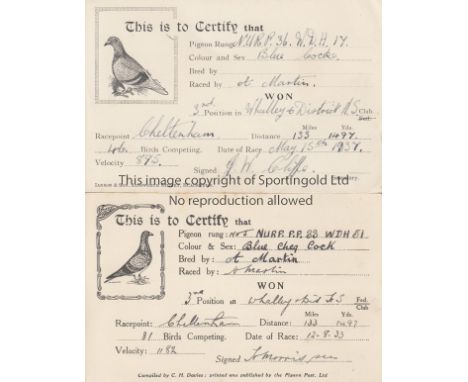 This is to Certify that
Pigeon Rung N.U.R.P. 36. W.D.H. 17.
Colour and Sex Blue Cock
Bred by
Raced by A Martin
WON
3rd Position in Whalley & District Club
Miles Yds.
Racepoint Cheltenham Distance 133 1497
Birds Competing. Date of Race May 15th 1937.
Velocity 875. Signed
This image copyright of Sportingold Ltd
No reproduction allowed
This is to Certify that
Pigeon rung: NURP. 33 WDH 81
Colour & Sex: Blue Cheq Cock
Bred by: A Martin
Raced by: A Martin
WON
3rd Position in Whalley & Dist F.S Fed. Club
Miles Yds.
Racepoint: Cheltenham Distance: 133 1497
81 Birds Competing. Date of Race: 12-8-33
Velocity: 1182
Signed
Compiled by C. H. Davies: printed and published by the Pigeon Post, Ltd